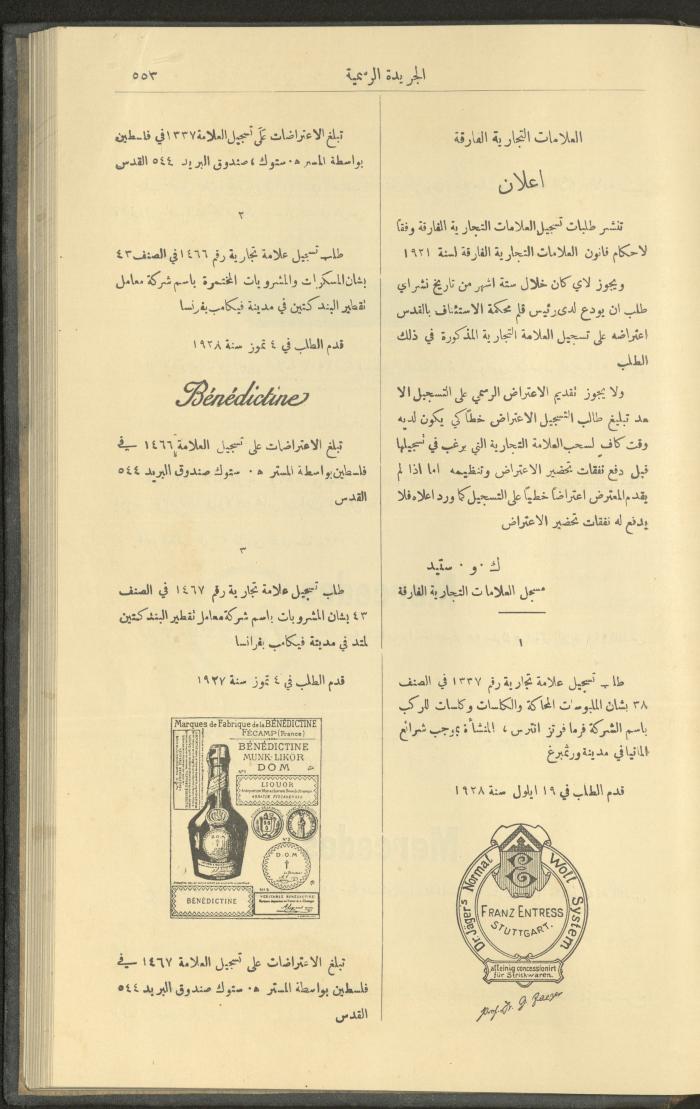 الجريدة الرسمية
٥٥٣
العلامات التجارية الفارقة
اعلان
تنشر طلبات تسجيل العلامات التجارية الفارقة وفقا
لاحكام قانون العلامات التجارية الفارقة لسنة ١٩٢١
ويجوز لاي كان خلال ستة اشهر من تاريخ نشر اي
طلب ان يودع لدى رئيس قلم محكمة الاستئناف بالقدس
اعتراضه على تسجيل العلامة التجارية المذكورة في ذلك
الطلب
ولا يجوز تقديم الاعتراض الرسمي على التسجيل الا
بعد تبليغ طالب التسجيل الاعتراض خطأ كي يكون لديه
وقت كاف لسحب العلامة التجارية التي يرغب في تسجيلها
قبل دفع نفقات تحضير الاعتراض وتنظيمه اما اذا لم
يقدم المعترض اعتراضا خطيا على التسجيل كما ورد اعلاه فلا
يدفع له نفقات تحضير الاعتراض
ك . و . ستيد
مسجل العلامات التجارية الفارقة
١
طلب تسجيل علامة تجارية رقم ١٣٣٧ في الصنف
٣٨ بشان الملبوسات المحاكة والكلسات وكلسات للركب
باسم الشركة فرما فرتز انترس ، المنشأة بموجب شرائع
المانيا في مدينة ورتمبرغ
قدم الطلب في ١٩ ايلول سنة ١٩٢٨
Dr. Jäger's Normal Woll System
FRANZ ENTRESS
STUTTGART.
alleinig concessionirt
für Strickwaren.
Prof. Dr. G. Jaeger
تبلغ الاعتراضات على تسجيل العلامة ١٣٣٧ في فلسطين
بواسطة المستر ه . ستوك ، صندوق البريد ٥٤٤ القدس
٢
طلب تسجيل علامة تجارية رقم ١٤٦٦ في الصنف ٤٣
بشان المسكرات والمشروبات المختمرة باسم شركة معامل
تقطير البندكتين في مدينة فيكامب بفرنسا
قدم الطلب في ٤ تموز سنة ١٩٢٨
Bénédictine
تبلغ الاعتراضات على تسجيل العلامة ١٤٦٦ في
فلسطين بواسطة المستر ه . ستوك صندوق البريد ٥٤٤
القدس
٣
طلب تسجيل علامة تجارية رقم ١٤٦٧ في الصنف
٤٣ بشان المشروبات باسم شركة معامل تقطير البندكتين
لمتد في مدينة فيكامب بفرانسا
قدم الطلب في ٤ تموز سنة ١٩٢٧
Marques de Fabrique de la BÉNÉDICTINE
FÉCAMP (France)
BÉNÉDICTINE
MUNK-LIKÖR
DOM
LIQUOR
D.O.M
BÉNÉDICTINE
VÉRITABLE BÉNÉDICTINE
تبلغ الاعتراضات على تسجيل العلامة ١٤٦٧ في
فلسطين بواسطة المستر ه . ستوك صندوق البريد ٥٤٤
القدس